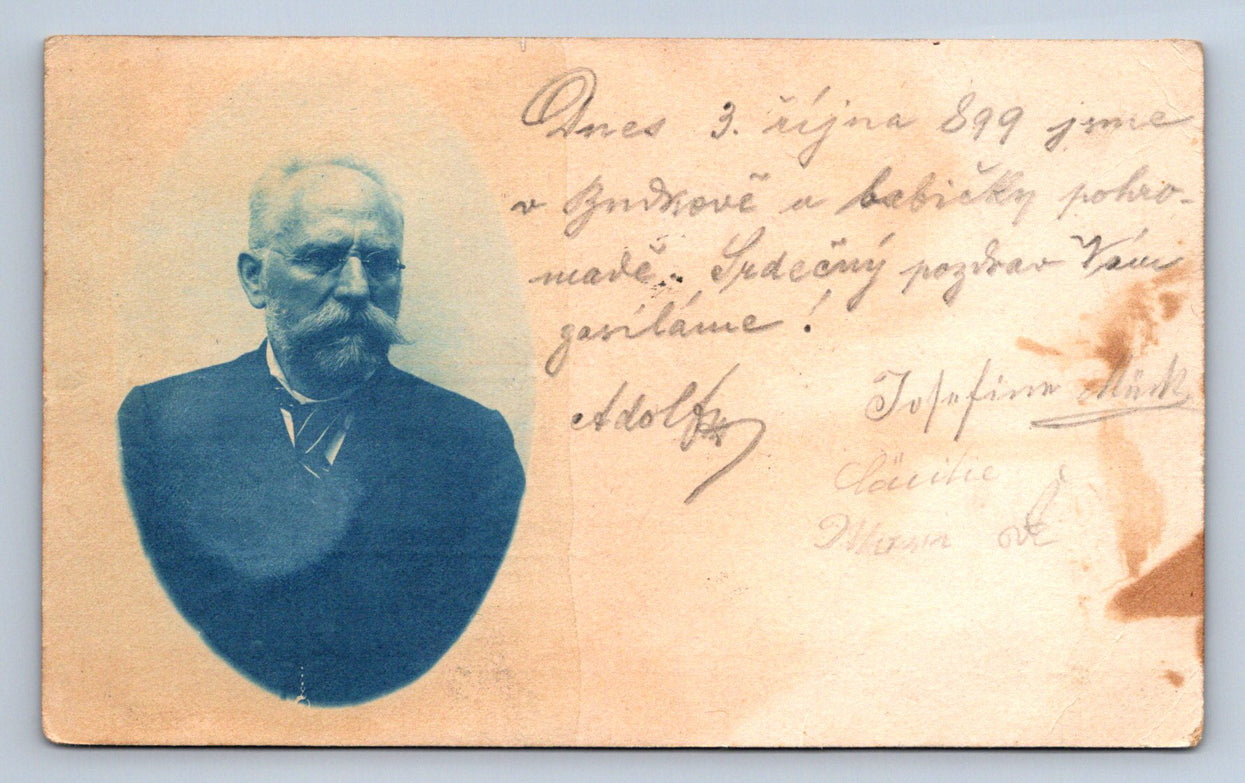 Dnes 3. října 899 jsme
v Budkově u babičky pohro-
madě. Srdečný pozdrav Vám
zasíláme!
Adolf
Josefine Mück
Cäcilie